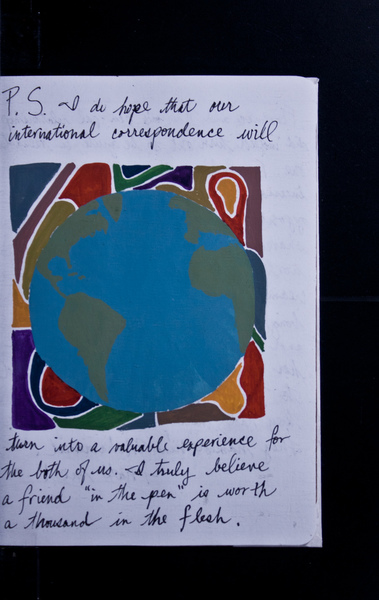 P. S. I do hope that our
international correspondence will
turn into a valuable experience for
the both of us. I truly believe
a friend "in the pen" is worth
a thousand in the flesh.